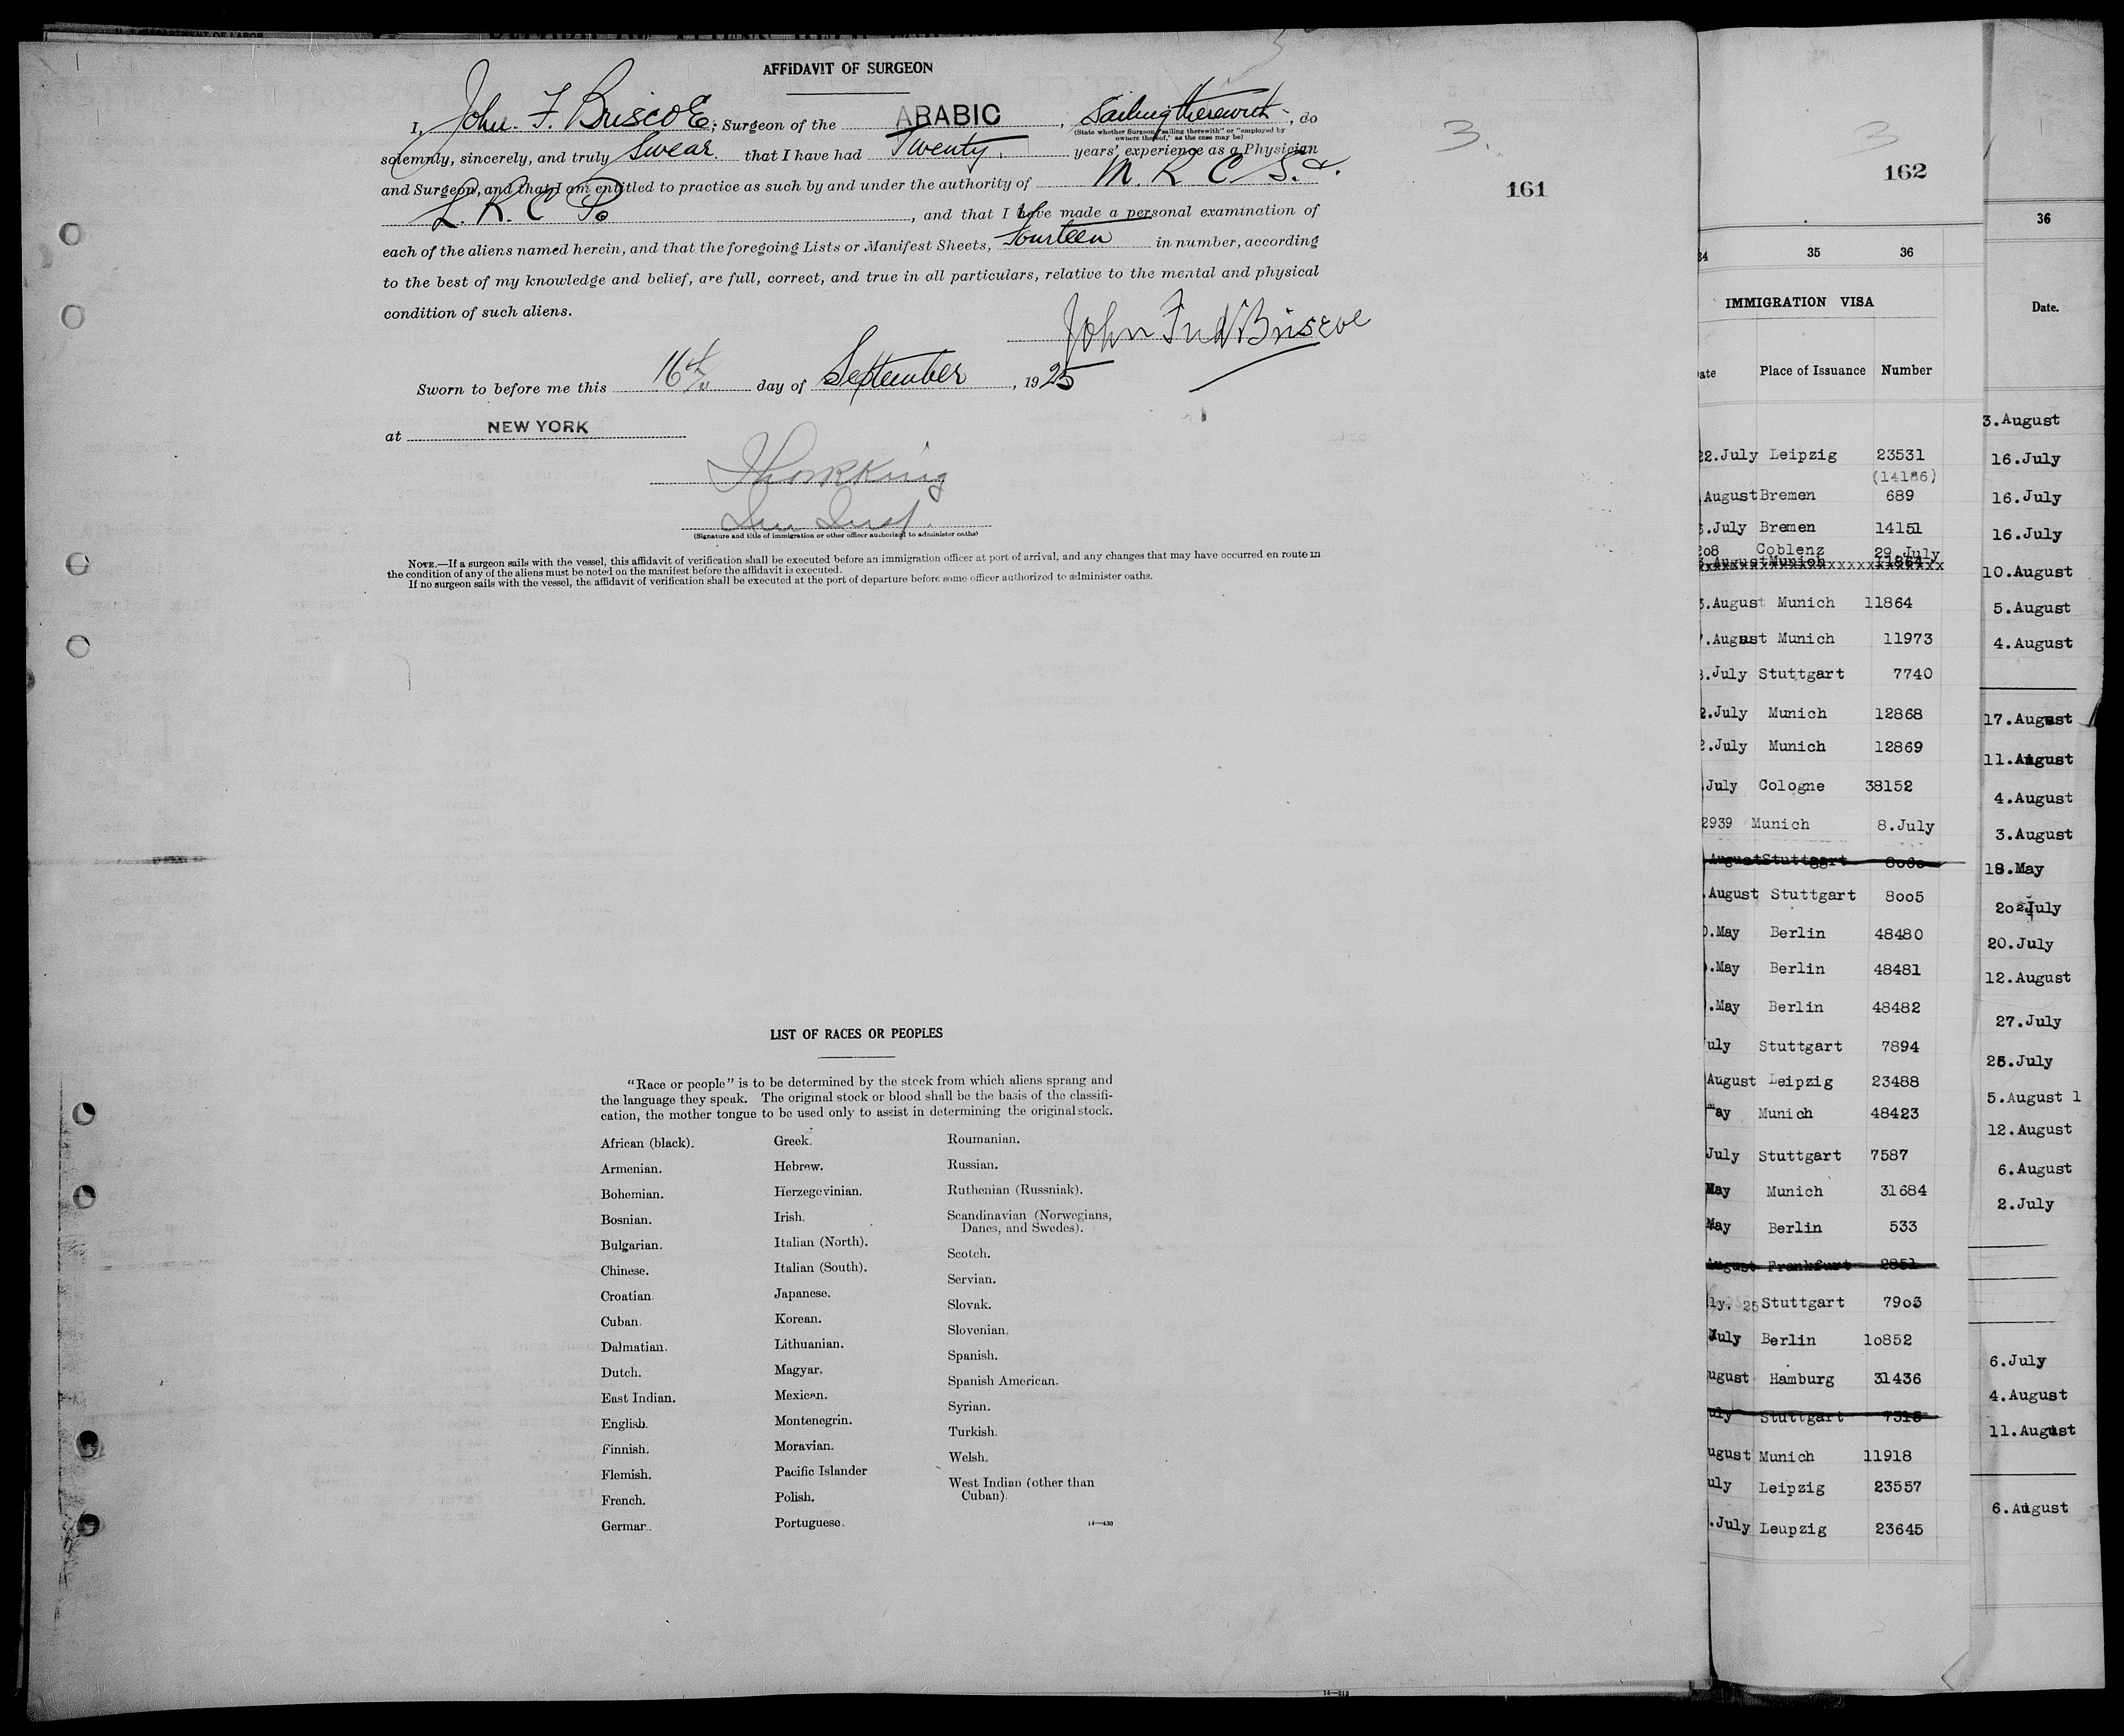 AFFIDAVIT OF SURGEON
I, John. F. Briscoe, Surgeon of the ARABIC, Sailing therewith, do
(State whether Surgeon "sailing therewith" or "employed by
owners thereof," as the case may be)
solemnly, sincerely, and truly Swear. that I have had Twenty, years' experience as a Physician
and Surgeon, and that I am entitled to practice as such by and under the authority of M. R. C. S. &.
L. R. C. P., and that I have made a personal examination of
each of the aliens named herein, and that the foregoing Lists or Manifest Sheets, fourteen in number, according
to the best of my knowledge and belief, are full, correct, and true in all particulars, relative to the mental and physical
condition of such aliens.
Sworn to before me this 16th day of September, 1925
at NEW YORK
(Signature and title of immigration or other officer authorized to administer oaths)
NOTE.—If a surgeon sails with the vessel, this affidavit of verification shall be executed before an immigration officer at port of arrival, and any changes that may have occurred en route in
the condition of any of the aliens must be noted on the manifest before the affidavit is executed.
If no surgeon sails with the vessel, the affidavit of verification shall be executed at the port of departure before some officer authorized to administer oaths.
3.
161
LIST OF RACES OR PEOPLES
"Race or people" is to be determined by the stock from which aliens sprang and
the language they speak. The original stock or blood shall be the basis of the classifi-
cation, the mother tongue to be used only to assist in determining the original stock.
African (black).
Armenian.
Bohemian.
Bosnian.
Bulgarian.
Chinese.
Croatian.
Cuban.
Dalmatian.
Dutch.
East Indian.
English.
Finnish.
Flemish.
French.
German.
Greek.
Hebrew.
Herzegovinian.
Irish.
Italian (North).
Italian (South).
Japanese.
Korean.
Lithuanian.
Magyar.
Mexican.
Montenegrin.
Moravian.
Pacific Islander
Polish.
Portuguese.
Roumanian.
Russian.
Ruthenian (Russniak).
Scandinavian (Norwegians,
Danes, and Swedes).
Scotch.
Servian.
Slovak.
Slovenian.
Spanish.
Spanish American.
Syrian.
Turkish.
Welsh.
West Indian (other than
Cuban).
3
162
34 35 36
IMMIGRATION VISA
Date Place of Issuance Number
22.July Leipzig 23531
(14186)
August Bremen 689
.July Bremen 14151
208 Coblenz 29.July
August Munich 11864
.August Munich 11864
.August Munich 11973
.July Stuttgart 7740
2.July Munich 12868
2.July Munich 12869
.July Cologne 38152
2939 Munich 8.July
August Stuttgart
.August Stuttgart 8005
.May Berlin 48480
.May Berlin 48481
.May Berlin 48482
uly Stuttgart 7894
August Leipzig 23488
May Munich 48423
July Stuttgart 7587
May Munich 31684
May Berlin 533
August Frankfurt 2851
ly. 25 Stuttgart 7903
July Berlin 10852
ugust Hamburg 31436
uly Stuttgart
ugust Munich 11918
uly Leipzig 23557
.July Leupzig 23645
36
Date.
3.August
16.July
16.July
16.July
10.August
5.August
4.August
17.August
11.August
4.August
3.August
18.May
20.July
20.July
12.August
27.July
25.July
5.August 1
12.August
6.August
2.July
6.July
4.August
11.August
6.August